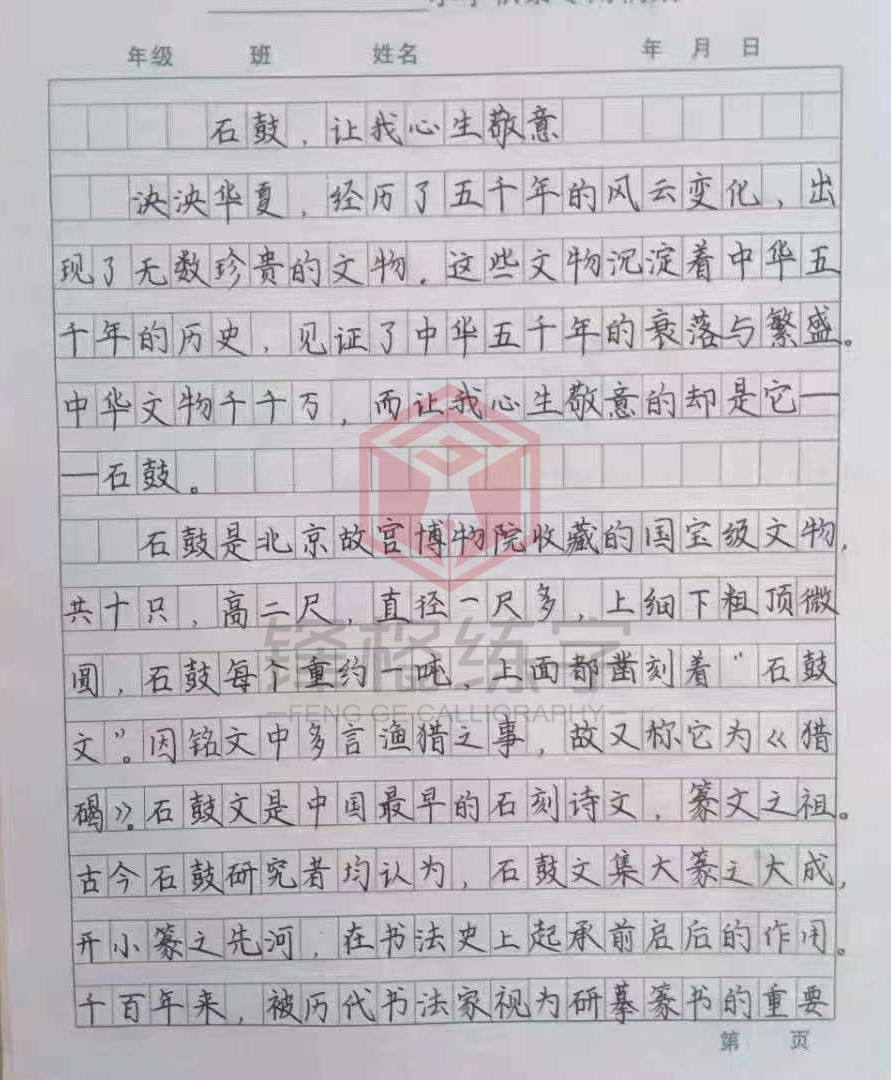 年级 班 姓名 年 月 日
石鼓，让我心生敬意
泱泱华夏，经历了五千年的风云变化，出
现了无数珍贵的文物。这些文物沉淀着中华五
千年的历史，见证了中华五千年的衰落与繁盛。
中华文物千千万，而让我心生敬意的却是它—
—石鼓。
石鼓是北京故宫博物院收藏的国宝级文物，
共十只，高二尺，直径一尺多，上细下粗顶微
圆，石鼓每个重约一吨，上面都凿刻着“石鼓
文”。因铭文中多言渔猎之事，故又称它为《猎
碣》。石鼓文是中国最早的石刻诗文，篆文之祖。
古今石鼓研究者均认为，石鼓文集大篆之大成，
开小篆之先河，在书法史上起承前启后的作用。
千百年来，被历代书法家视为研摹篆书的重要
第 页
锋格练字
FENG GE CALLIGRAPHY